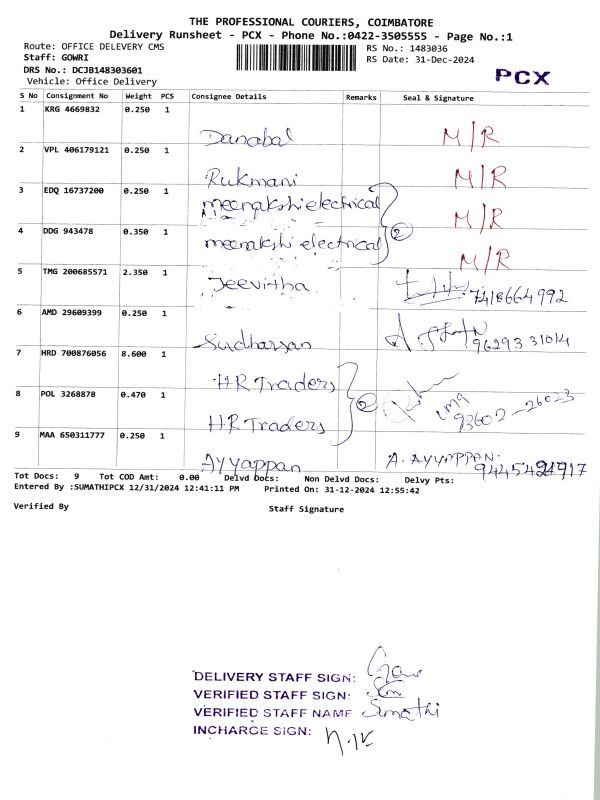 THE PROFESSIONAL COURIERS, COIMBATORE
Delivery Runsheet - PCX - Phone No.:0422-3505555 - Page No.:1
Route: OFFICE DELEVERY CMS RS No.: 1483036
Staff: GOWRI RS Date: 31-Dec-2024
DRS No.: DCJB148303601 PCX
Vehicle: Office Delivery
S No Consignment No Weight PCS Consignee Details Remarks Seal & Signature
1 KRG 4669832 0.250 1 Danabal M/R
2 VPL 406179121 0.250 1 Rukmani M/R
3 EDQ 16737200 0.250 1 meenakshi electrical M/R
4 DDG 943478 0.350 1 meenakshi electrical 2 M/R
5 TMG 200685571 2.350 1 Jeevitha 7418664992
6 AMD 29609399 0.250 1 Sudharsan 9629331014
7 HRD 700876056 8.600 1 HR Traders
8 POL 3268878 0.470 1 HR Traders 2 uma 93602-26023
9 MAA 650311777 0.250 1 Ayyappan A. AYYAPPAN.
Tot Docs: 9 Tot COD Amt: 0.00 Delvd Docs: Non Delvd Docs: Delvy Pts:
Entered By :SUMATHIPCX 12/31/2024 12:41:11 PM Printed On: 31-12-2024 12:55:42
Verified By Staff Signature
DELIVERY STAFF SIGN:
VERIFIED STAFF SIGN:
VERIFIED STAFF NAME Sumathi
INCHARGE SIGN: